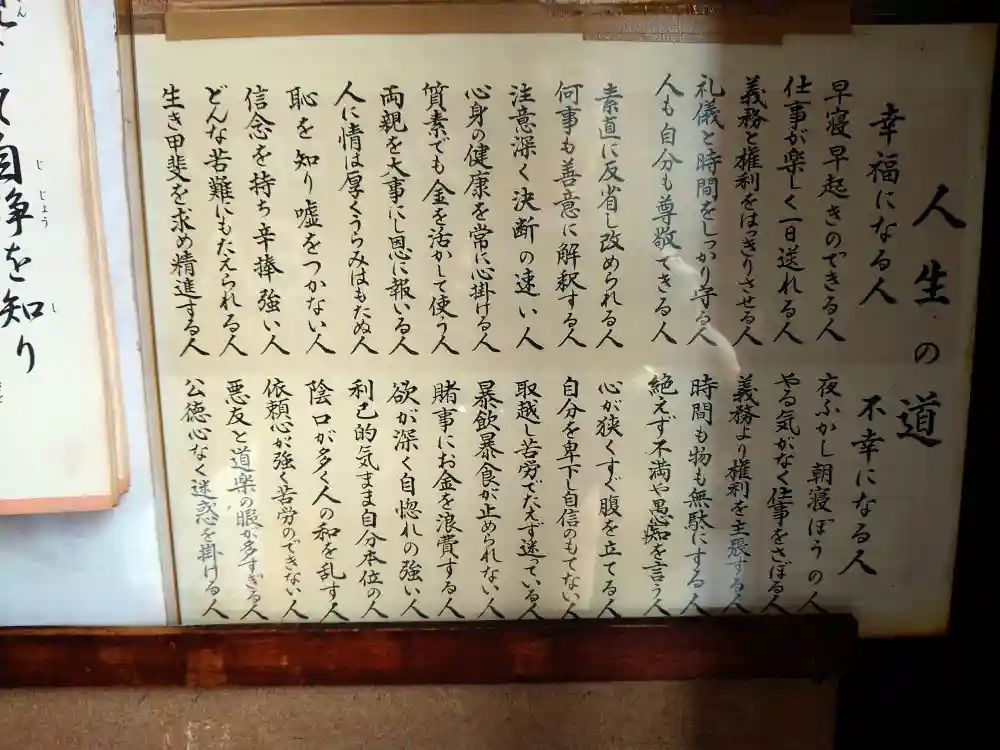 人生の道
幸福になる人
早寝早起きのできる人
仕事が楽しく一日送れる人
義務と権利をはっきりさせる人
礼儀と時間をしっかり守る人
人も自分も尊敬できる人
素直に反省し改められる人
何事も善意に解釈する人
注意深く決断の速い人
心身の健康を常に心掛ける人
質素でも金を活かして使う人
両親を大事にし恩に報いる人
人に情は厚くうらみはもたぬ人
恥を知り嘘をつかない人
信念を持ち辛捧強い人
どんな苦難にもたえられる人
生き甲斐を求め精進する人
不幸になる人
夜ふかし朝寝ぼうの人
やる気がなく仕事をさぼる人
義務より権利を主張する人
時間も物も無駄にする人
絶えず不満や愚知を言う人
心が狭くすぐ腹を立てる人
自分を卑下し自信のもてない人
取越し苦労でたえず迷っている人
暴飲暴食が止められない人
賭事にお金を浪費する人
欲が深く自惚れの強い人
利己的気まま自分本位の人
陰口が多く人の和を乱す人
依頼心が強く苦労のできない人
悪友と道楽の暇が多すぎる人
公徳心なく迷惑を掛ける人
自浄を知り